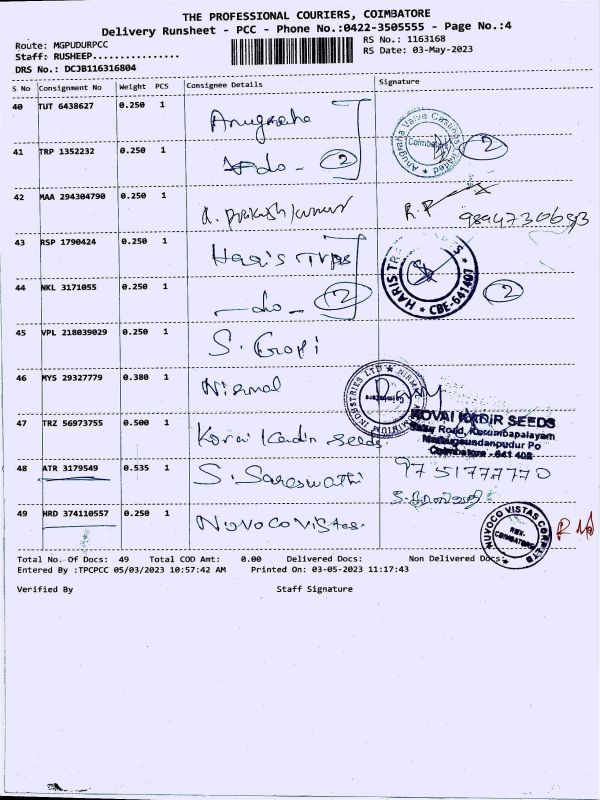 THE PROFESSIONAL COURIERS, COIMBATORE
Delivery Runsheet - PCC - Phone No.:0422-3505555 - Page No.:4
Route: MGPUDURPCC
RS No.: 1163168
Staff: RUSHEEP................
RS Date: 03-May-2023
DRS No.: DCJB116316804
S No Consignment No Weight PCS Consignee Details Signature
40 TUT 6438627 0.250 1 Anugraha
Anugraha Valve Castings Limited
Coimbatore
41 TRP 1352232 0.250 1 -do- 2 2
42 MAA 294304790 0.250 1 A. Prakash kumar R.P
43 RSP 1790424 0.250 1
CBE-641407
44 NKL 3171055 0.250 1 -do- 2 2
45 VPL 218039029 0.250 1 S. Gopi
46 MYS 29327779 0.380 1 Nirmal
47 TRZ 56973755 0.500 1 Kovai Kadir seeds
KOVAI KADIR SEEDS
Road, Kurumbapalayam
Coimbatore - 641
48 ATR 3179549 0.535 1 S. Sareswathi 9751777770
49 HRD 374110557 0.250 1 Nuvoco vistas.
NUVOCO VISTAS CORP LTD
COIMBATORE
Total No. Of Docs: 49 Total COD Amt: 0.00 Delivered Docs: Non Delivered Docs:
Entered By :TPCPCC 05/03/2023 10:57:42 AM Printed On: 03-05-2023 11:17:43
Verified By Staff Signature